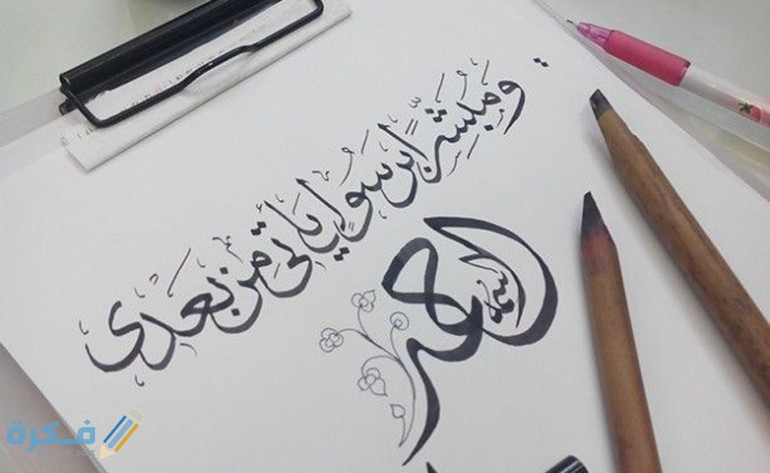 ومبشراً برسول يأتى من بعدى
اسمه احمد
فكرة